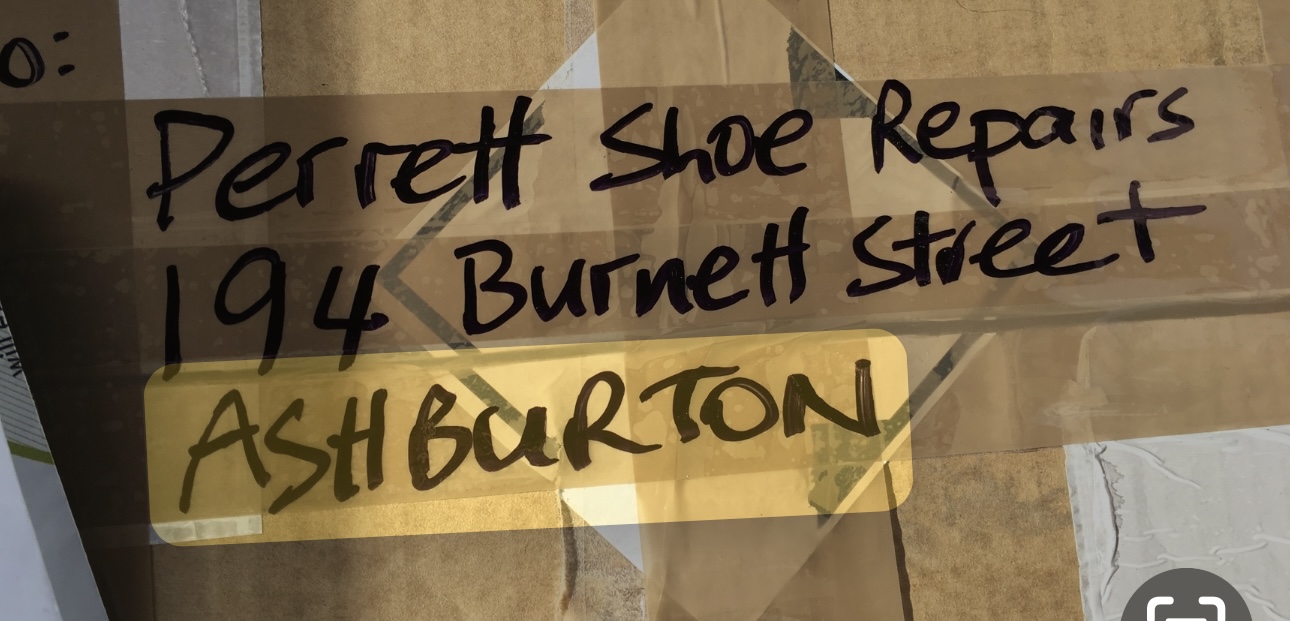 o:
Perrett Shoe Repairs
194 Burnett Street
ASHBURTON